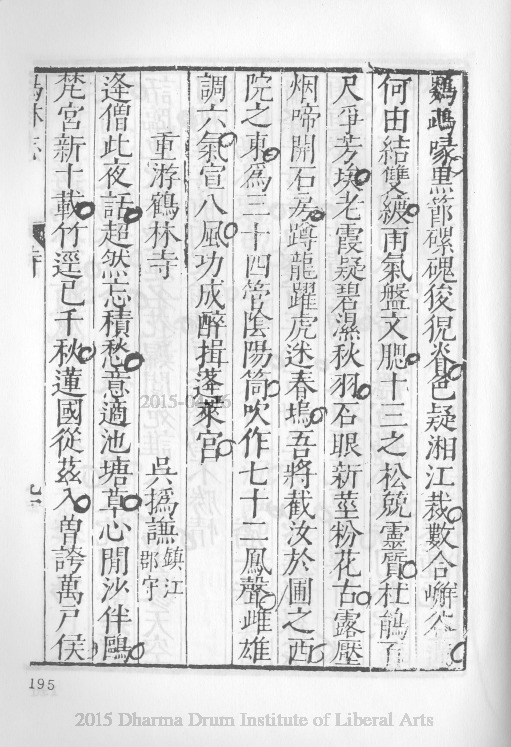 鸚鵡喙黑節磥磈狻猊爻色疑湘江裁數合嶰谷
何由結雙綬雨氣盤文腮十三之松競靈質杜鵑百
尺爭芳埃老霞疑碧濕秋羽石眼新莖粉花古露壓
烟啼開石房蹲龍躍虎迷春塢吾將截汝於圃之西
院之東為三十四管陰陽筒吹作七十二鳳聲雌雄
調六氣宣八風功成醉揖蓬萊宮
重游鶴林寺 吳撝謙 鎮江郡守
逢僧此夜話超然忘積愁意適池塘草心閒沙伴鷗
梵宮新十載竹逕已千秋蓮國從茲入曾誇萬戶侯
195
2015-04-
2015 Dharma Drum Institute of Liberal Arts